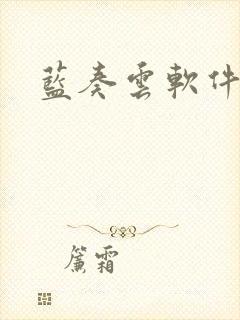 藍奏雲軟件
簾霜